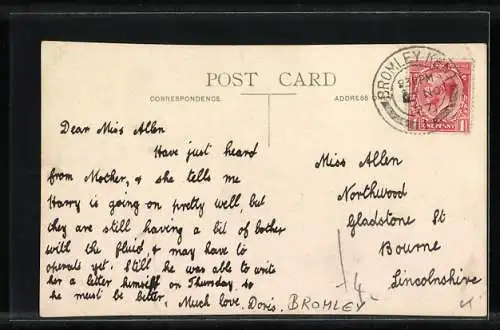 POST CARD
CORRESPONDENCE
ADDRESS
BROMLEY. KENT
PM
PENNY
1
Dear Miss Allen
Have just heard
from Mother, & she tells me
Harry is going on pretty well, but
they are still having a bit of bother
with the fluid & may have to
operate yet. Still he was able to write
her a letter himself on Thursday so
he must be better. Much love. Doris. BROMLEY
Miss Allen
Northwood
Gladstone St
Bourne
Lincolnshire